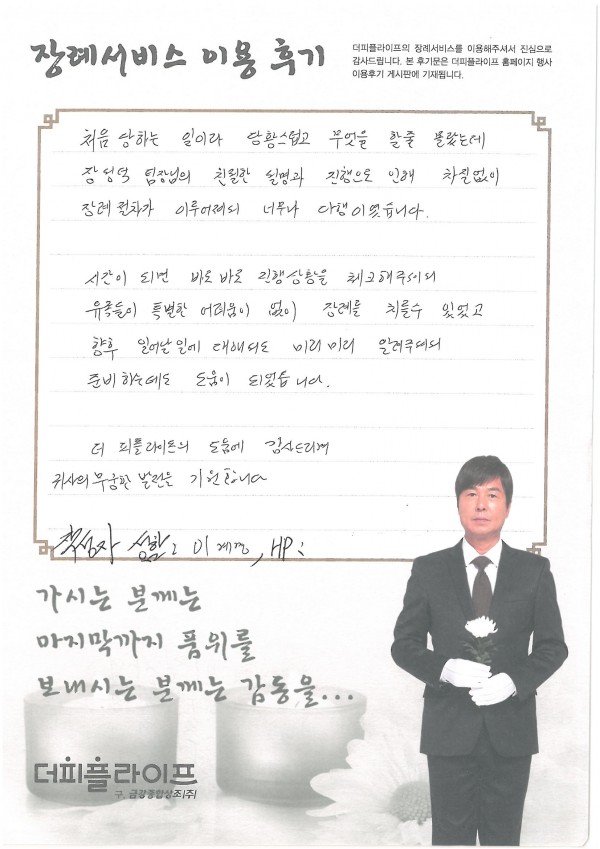 장례서비스 이용 후기
더피플라이프의 장례서비스를 이용해주셔서 진심으로
감사드립니다. 본 후기문은 더피플라이프 홈페이지 행사
이용후기 게시판에 기재됩니다.
처음 당하는 일이라 당황스럽고 무엇을 할줄 몰랐는데
장성덕 팀장님의 친절한 설명과 진행으로 인해 차질없이
장례 절차가 이루어져서 너무나 다행이였습니다.
시간이 되면 바로 바로 진행상황을 체크해주셔서
유족들이 특별한 어려움이 없이 장례를 치를수 있었고
향후 일어날일에 대해서도 미리 미리 알려주셔서
준비하는데도 도움이 되었습니다.
더 피플라이프의 도움에 감사드리며
귀사의 무궁한 발전을 기원합니다
작성자 성함: 이계경, HP:
가시는 분께는
마지막까지 품위를
보내시는 분께는 감동을...
더피플라이프
구. 금강종합상조(주)